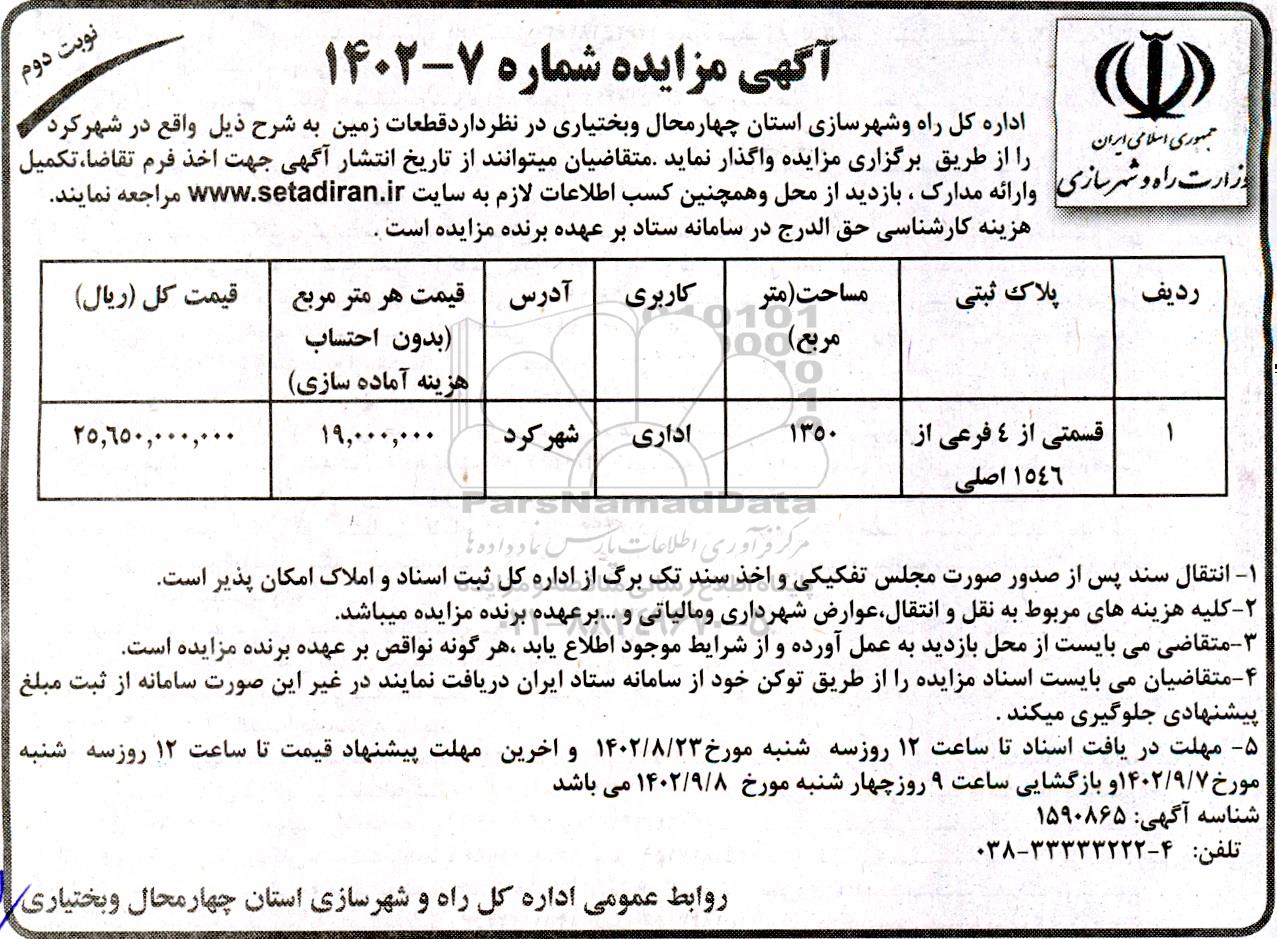 نوبت دوم
آگهی مزایده شماره ۷-۱۴۰۲
جمهوری اسلامی ایران
وزارت راه و شهرسازی
اداره کل راه وشهرسازی استان چهارمحال وبختیاری در نظرداردقطعات زمین به شرح ذیل واقع در شهرکرد
را از طریق برگزاری مزایده واگذار نماید .متقاضیان میتوانند از تاریخ انتشار آگهی جهت اخذ فرم تقاضا،تکمیل
وارائه مدارک ، بازدید از محل وهمچنین کسب اطلاعات لازم به سایت www.setadiran.ir مراجعه نمایند.
هزینه کارشناسی حق الدرج در سامانه ستاد بر عهده برنده مزایده است .
ردیف پلاک ثبتی مساحت(متر مربع) کاربری آدرس قیمت هر متر مربع (بدون احتساب هزینه آماده سازی) قیمت کل (ریال)
۱ قسمتی از ٤ فرعی از ١٥٤٦ اصلی ۱۳۵۰ اداری شهرکرد ۱۹,۰۰۰,۰۰۰ ۲۵,۶۵۰,۰۰۰,۰۰۰
ParsNamadData
مرکز فرآوری اطلاعات پارس نماد داده ها
پایگاه اطلاع رسانی مناقصه و مزایده
۱- انتقال سند پس از صدور صورت مجلس تفکیکی و اخذ سند تک برگ از اداره کل ثبت اسناد و املاک امکان پذیر است.
۲-کلیه هزینه های مربوط به نقل و انتقال،عوارض شهرداری ومالیاتی و...برعهده برنده مزایده میباشد.
۳-متقاضی می بایست از محل بازدید به عمل آورده و از شرایط موجود اطلاع یابد ،هر گونه نواقص بر عهده برنده مزایده است.
۴-متقاضیان می بایست اسناد مزایده را از طریق توکن خود از سامانه ستاد ایران دریافت نمایند در غیر این صورت سامانه از ثبت مبلغ
پیشنهادی جلوگیری میکند .
۵- مهلت در یافت اسناد تا ساعت ۱۲ روزسه شنبه مورخ۱۴۰۲/۸/۲۳ و اخرین مهلت پیشنهاد قیمت تا ساعت ۱۲ روزسه شنبه
مورخ۱۴۰۲/۹/۷و بازگشایی ساعت ۹ روزچهار شنبه مورخ ۱۴۰۲/۹/۸ می باشد
شناسه آگهی: ۱۵۹۰۸۶۵
تلفن: ۴-۳۳۳۳۳۲۲۲-۰۳۸
روابط عمومی اداره کل راه و شهرسازی استان چهارمحال وبختیاری